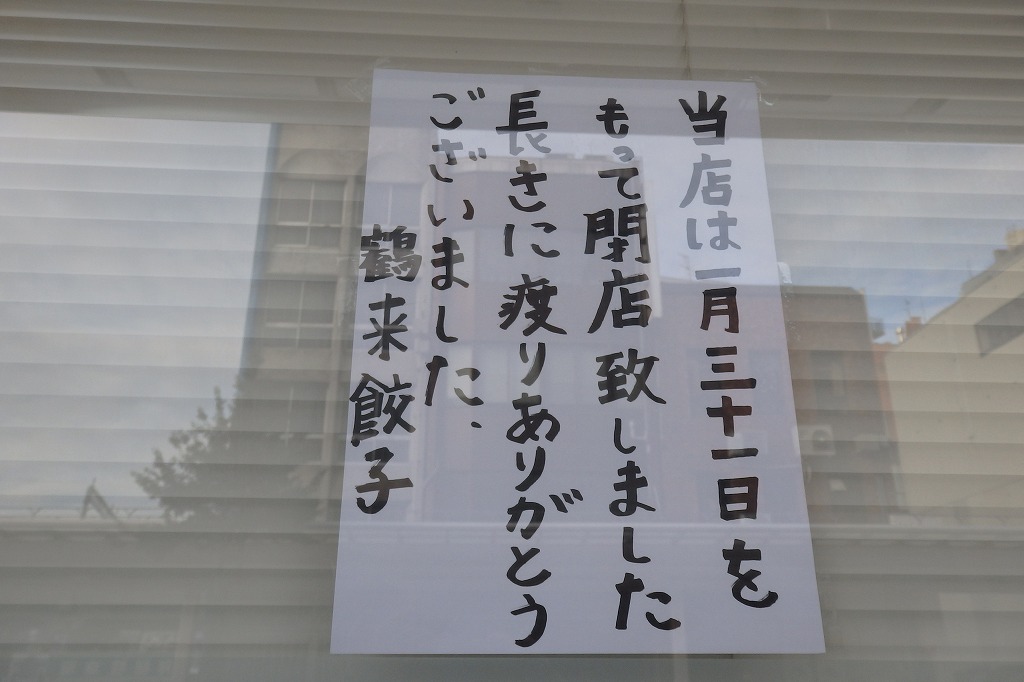 当店は一月三十一日を
もって閉店致しました
長きに渡りありがとう
ございました、
鶴来餃子